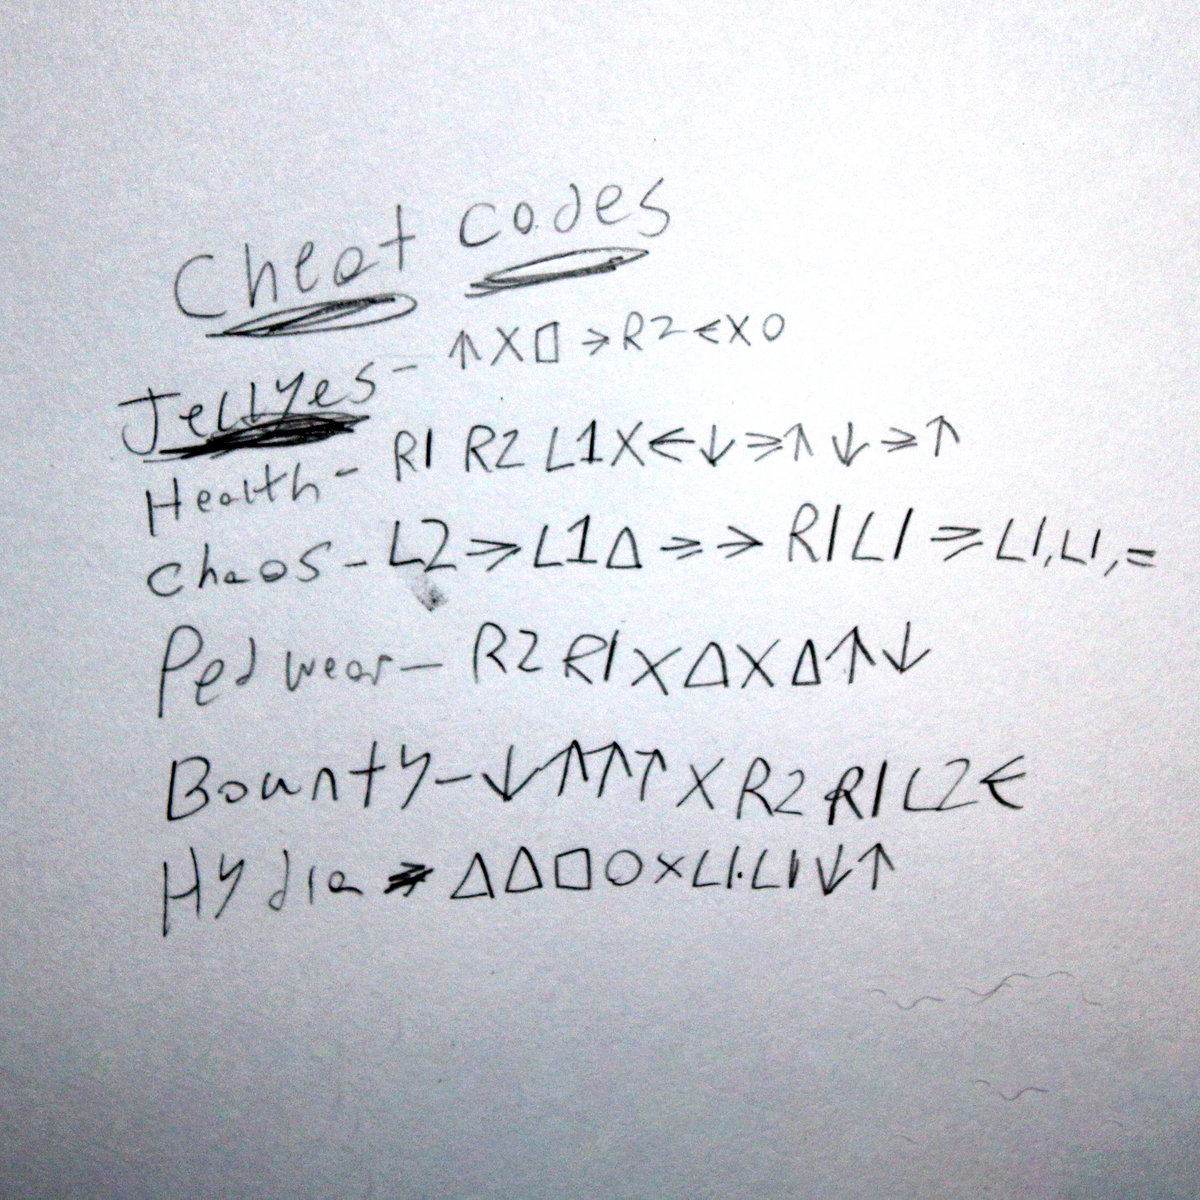 Cheat Codes
Jellyes - ↑ X □ → R2 ← X O
Health - R1 R2 L1 X ← ↓ → ↑ ↓ → ↑
Chaos - L2 → L1 △ → → R1 L1 → L1, L1, =
Ped wear - R2 R1 X △ X △ ↑ ↓
Bounty - ↓ ↑ ↑ ↑ X R2 R1 L2 ←
Hydia - △ △ □ O X L1. L1 ↓ ↑